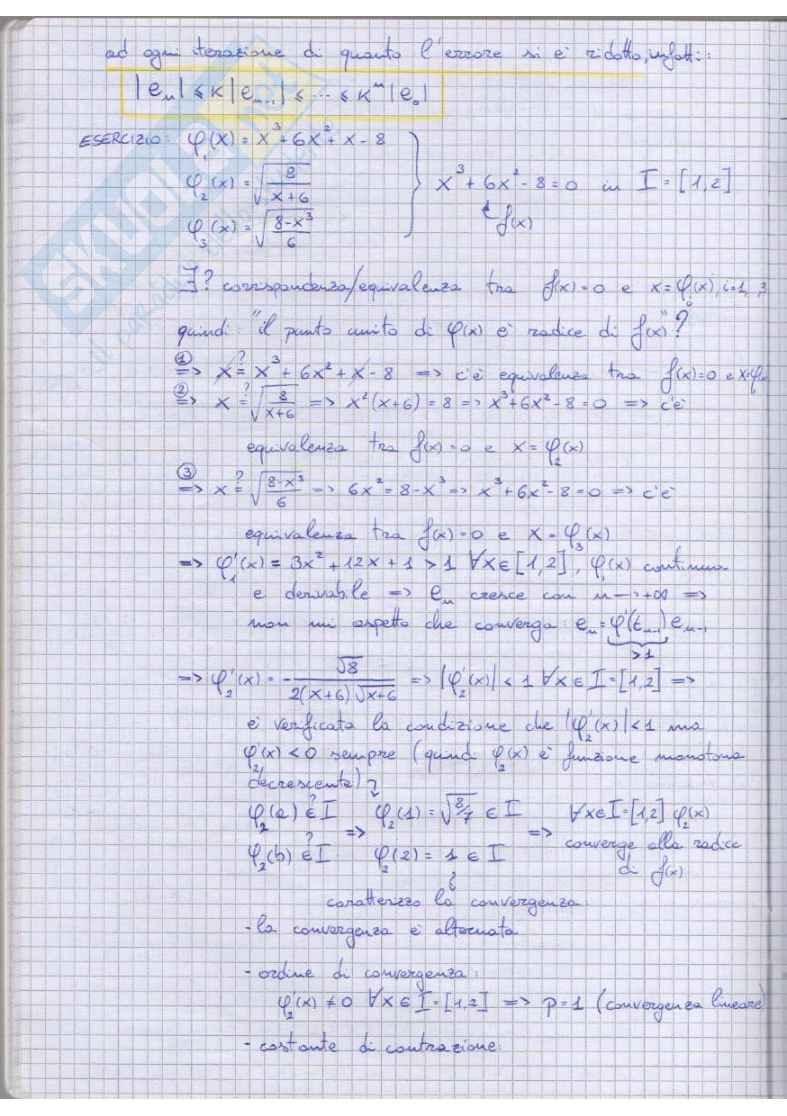 ad ogni iterazione di quanto l'errore si è ridotto, infatti:
|eₙ| ≤ K|eₙ₋₁| ≤ ... ≤ Kⁿ|e₀|
ESERCIZIO: φ₁(x) = x³ + 6x² + x - 8
φ₂(x) = √(8/(x+6)) } x³ + 6x² - 8 = 0 in I = [1,2]
f(x)
φ₃(x) = √((8-x³)/6)
∃? corrispondenza/equivalenza tra f(x)=0 e x=φᵢ(x), i=1, 3
quindi: "il punto unito di φ(x) è radice di f(x)"?
① => x ?= x³ + 6x² + x - 8 => c'è equivalenza tra f(x)=0 e x=φ₁
② => x ?= √(8/(x+6)) => x²(x+6) = 8 => x³+6x²-8=0 => c'è
equivalenza tra f(x)=0 e x = φ₂(x)
③ => x ?= √((8-x³)/6) => 6x² = 8-x³ => x³+6x²-8=0 => c'è
equivalenza tra f(x)=0 e x=φ₃(x)
=> φ₁'(x) = 3x² + 12x + 1 > 1 ∀x∈[1,2], φ₁(x) continua
e derivabile => eₙ cresce con n→+∞ =>
non mi aspetto che converga: eₙ = φ'(tₙ₋₁) eₙ₋₁
>1
=> φ₂'(x) = - √8/(2(x+6)√(x+6)) => |φ₂'(x)| < 1 ∀x∈I=[1,2] =>
è verificata la condizione che |φ₂'(x)|<1 ma
φ₂'(x) < 0 sempre (quindi φ₂(x) è funzione monotona
decrescente)
φ₂(a) ?∈ I => φ₂(1) = √(8/7) ∈ I => ∀x∈I=[1,2] φ₂(x)
φ₂(b) ?∈ I φ₂(2) = 1 ∈ I converge alla radice
di f(x)
caratterizzo la convergenza:
- la convergenza è alternata
- ordine di convergenza:
φ₂'(x) ≠ 0 ∀x∈I=[1,2] => p=1 (convergenza lineare)
- costante di contrazione: